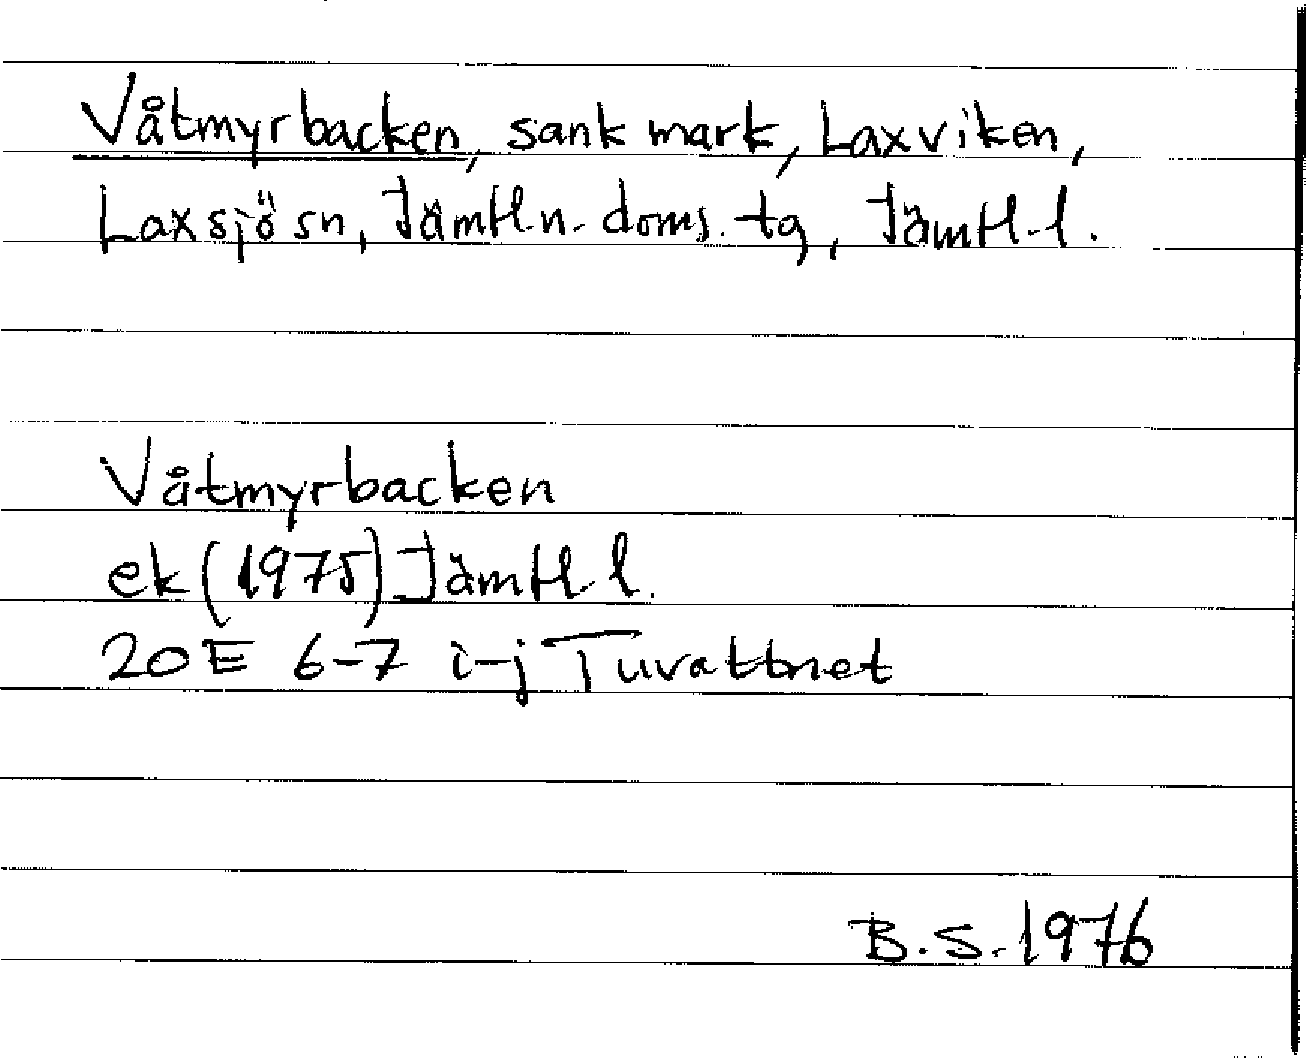 Våtmyrbacken, sank mark, Laxviken,
Laxsjö sn, Jämtl.n. doms. tg, Jämtl. l.
Våtmyrbacken
ek (1975) Jämtl. l.
20E 6-7 i-j Tuvattnet
B.S. 1976